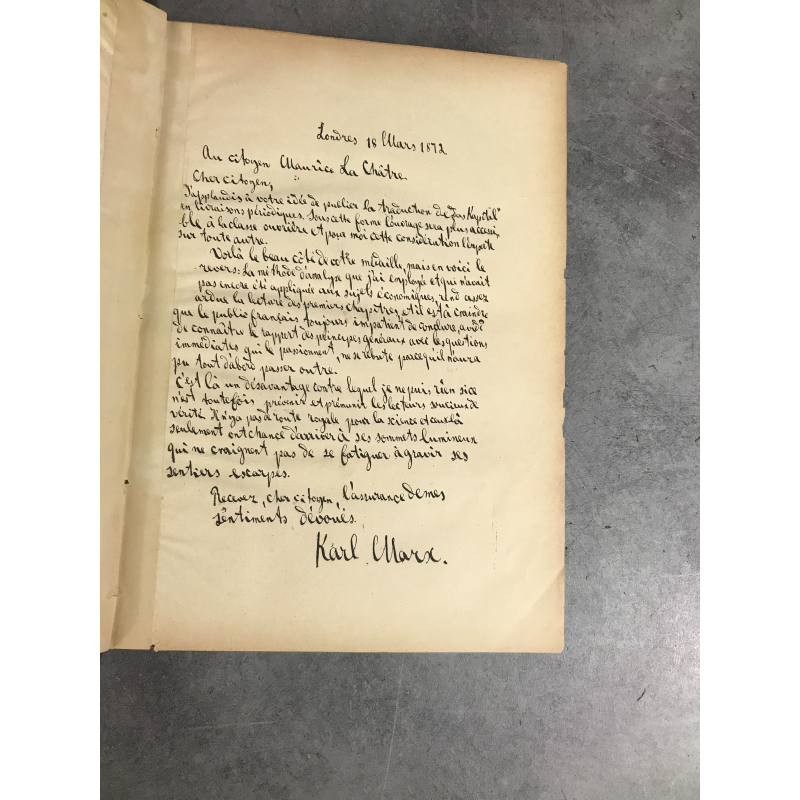 Londres 18 Mars 1872
Au citoyen Maurice La Châtre.
Cher citoyen,
J'applaudis à votre idée de publier la traduction de „Das Kapital"
en livraisons périodiques. Sous cette forme l'ouvrage sera plus accessi,
ble à la classe ouvrière et pour moi cette considération l'emporte
sur toute autre.
Voilà le beau côté de votre médaille, mais en voici le
revers: La méthode d'analyse que j'ai employée et qui n'avait
pas encore été appliquée aux sujets économiques, rend assez
ardue la lecture des premiers chapitres, et il est à craindre
que le public français toujours impatient de conclure, avide
de connaître le rapport des principes généraux avec les questions
immédiates qui le passionnent, ne se rebute parce qu'il n'aura
pu tout d'abord passer outre.
C'est là un désavantage contre lequel je ne puis rien si ce
n'est toutefois prévenir et prémunir les lecteurs soucieux de
vérité. Il n'y a pas de route royale pour la science et ceux-là
seulement ont chance d'arriver à ses sommets lumineux
qui ne craignent pas de se fatiguer à gravir ses
sentiers escarpés.
Recevez, cher citoyen, l'assurance de mes
sentiments dévoués.
Karl Marx.